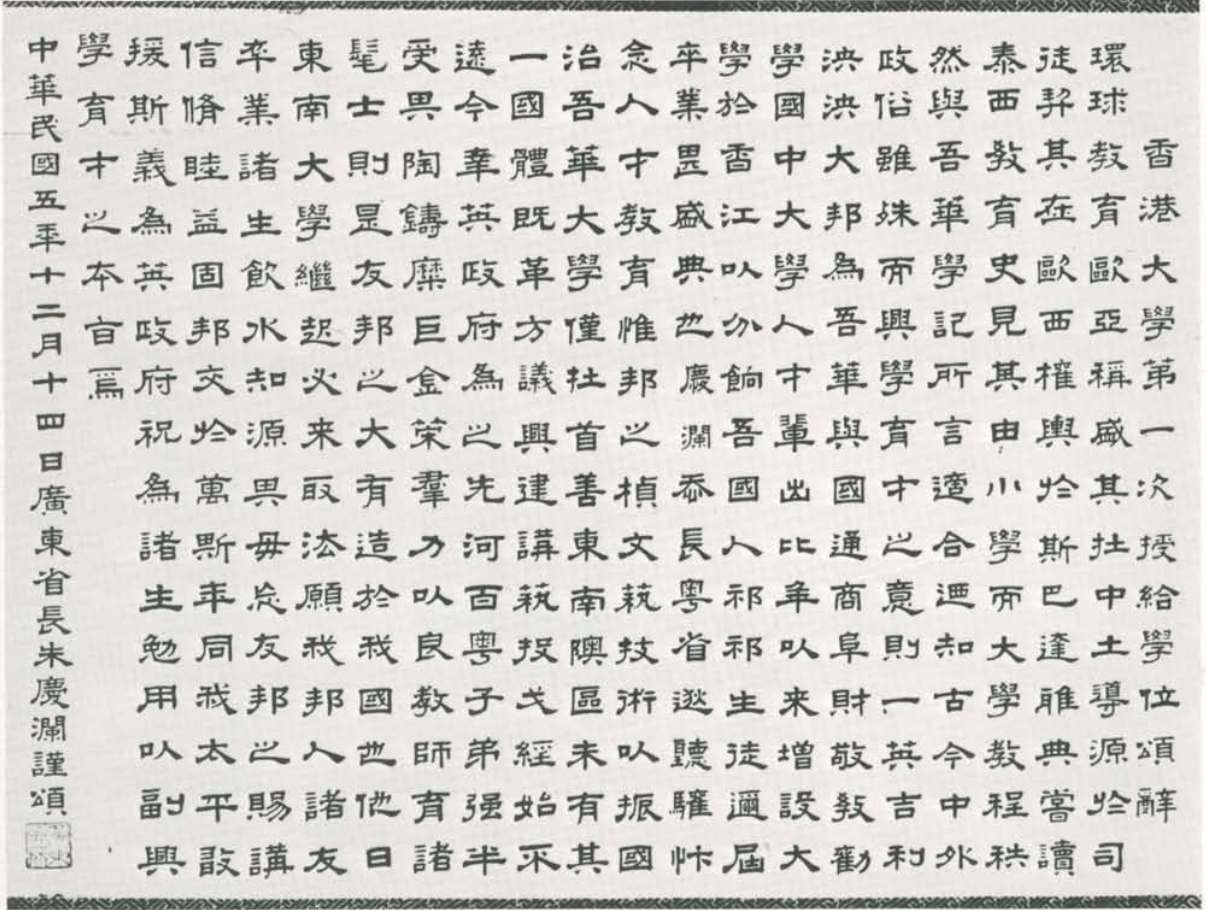 香港大學第一次授給學位頌辭
環球教育歐亞稱盛其扗中土導源於司
徒契其在歐西權輿於斯巴達雅典嘗讀
泰西教育史見其由小學而大學教程秩
然與吾華學記所言適合迺知古今中外
政俗雖殊而興學育才之意則一英吉利
泱泱大邦為吾華與國通商阜財敬教勸
學國中大學人才輩出比年以來增設大
學於香江以分餉吾國人祁祁生徒邇屆
卒業甚盛典也慶瀾忝長粵省逖聽驩忭
念人才教育惟邦之楨文蓺技術以振國
治吾華大學僅扗首善東南隩區未有其
一國體既革方議興建講蓺投戈經始不
遠今幸英政府為之先河百粵子弟强半
受其陶鑄縻巨金策羣力以良教師育諸
髦士則是友邦之大有造於我國也他日
東南大學繼起必來取法願我邦人諸友
卒業諸生飲水知源其毋忘友邦之賜講
信脩睦益固邦交於萬斯年同我太平敢
援斯義為英政府祝為諸生勉用以副興
學育才之本旨焉
中華民國五年十二月十四日廣東省長朱慶瀾謹頌